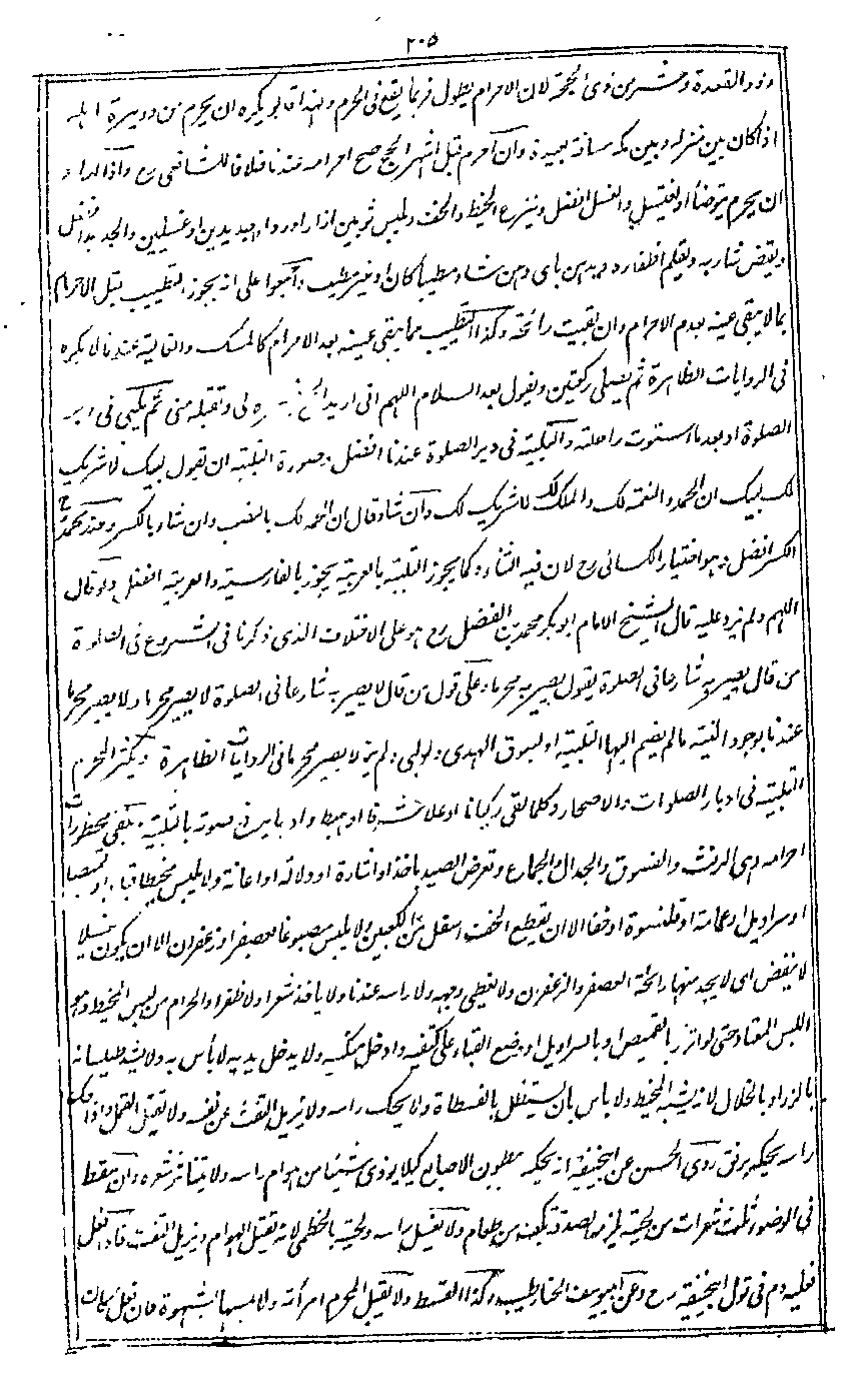 ٢٠٥
وذو القعدة وعشر من ذى الحجة لان الاحرام يطول فربما يقع فى الحرم ولهذا قالو يكره ان يحرم من دويرة اهله
اذا كان بين منزله وبين مكه مسافة بعيدة وان احرم قبل اشهر الحج صح احرامه عندنا خلافا للشافعى رح واذا اراد
ان يحرم يتوضأ او يغتسل والغسل افضل وينزع المخيط والخف ولبس ثوبين ازارا ورداء جديدين او غسيلين والجديد افضل
ويقص شاربه ويقلم اظفاره ويدهن باى دهن شاء مطيبا كان او غير مطيب واجمعوا على انه يجوز التطيب قبل الاحرام
بما لا يبقى عينه بعد الاحرام وان بقيت رائحته وكذا التطيب بما يبقى عينه بعد الاحرام كالمسك والغالية عندنا لا يكره
فى الروايات الظاهرة ثم يصلى ركعتين ويقول بعد السلام اللهم انى اريد الحج فيسره لى وتقبله منى ثم يلبى فى دبر
الصلوة او بعد ما استوت راحلته والتلبية فى دبر الصلوة عندنا افضل وصورة التلبية ان تقول لبيك لا شريك
لك لبيك ان الحمد والنعمة لك والملك لك لا شريك لك وان شاء قال ان النعمة لك بالنصب وان شاء بالكسر وعند محمد رح
الكسر افضل وهو اختيار الكسائى رح لان فيه الثناء وكما يجوز التلبية بالعربية يجوز بالفارسية والعربية افضل ولو قال
اللهم ولم يزد عليه قال الشيخ الامام ابو بكر محمد بن الفضل رح هو على الاختلاف الذى ذكرنا فى الشروع فى الصلوة
من قال يصير به شارعا فى الصلوة يقول يصير به محرما وعلى قول من قال لا يصير به شارعا فى الصلوة لا يصير محرما ولا يصير محرما
عندنا بوجود النية ما لم يضم اليها التلبية او يسوق الهدى ولو لبى ولم ينو لا يصير محرما فى الروايات الظاهرة ويكثر المحرم
التلبية فى ادبار الصلوات والاسحار وكلما لقى ركبانا او علا شرفا او هبط واديا يرفع صوته بالتلبية ويتقى محظورات
احرامه وهى الرفث والفسوق والجدال والجماع وتعرض الصيد باخذ او اشارة او دلالة او اعانة ولا يلبس مخيطا قباء او قميصا
او سراويل او عمامة او قلنسوة او خفا الا ان يقطع الخف اسفل من الكعبين ولا يلبس مصبوغا بعصفر او زعفران الا ان يكون غسيلا
لا ينفض اى لا يجد منها رائحة العصفر والزعفران ولا يغطى وجهه ولا راسه عندنا ولا ياخذ شعرا ولا ظفرا والحرام من لبس المخيط وهو
اللبس المعتاد حتى لو اتزر بالقميص او بالسراويل او وضع القباء على كتفيه وادخل منكبيه ولا يدخل يديه لا بأس به ولا يشد طيلسانه
بالزر او بالخلال لانه يشبه المخيط ولا باس بان يستظل بالفسطاط ولا يحك راسه ولا يزيل التفث عن نفسه ولا يقتل القمل واذا حك
راسه يحكه برفق روى الحسن عن ابيحنيفة انه يحكه ببطون الاصابع كيلا يوذى شيئا من هوام راسه ولا يتناثر شعره وان سقط
فى الوضوء ثلث شعرات من لحيته يلزمه الصدقة بكفه من طعام ولا يغسل راسه ولحيته بالخطمى لانه يقتل الهوام ويزيل التفث فاذا فعل
فعليه دم فى قول ابيحنيفة رح وعن ابيوسف الحنا وكذا القسط ولا يقبل المحرم امرأته ولا يمسها بشهوة فان فعل كان